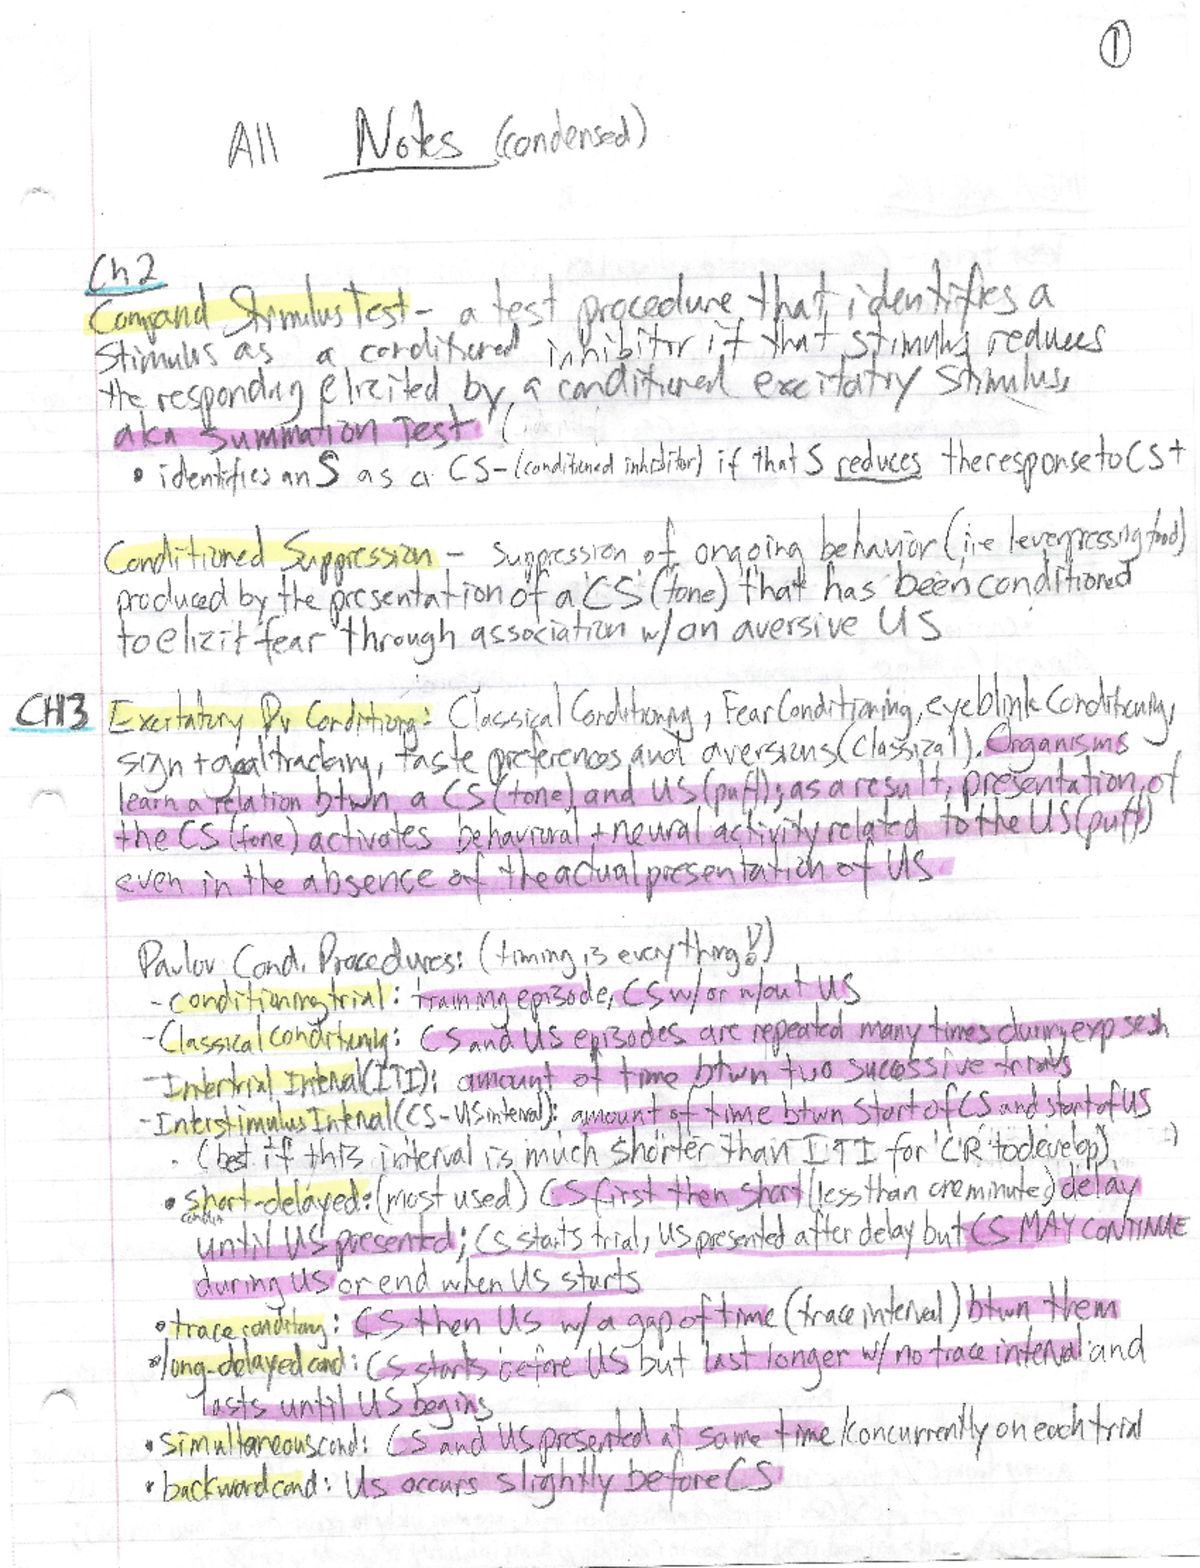 ①
All Notes (condensed)
Ch 2
Compand Stimulus Test - a test procedure that identifies a
stimulus as a conditioned inhibitor if that stimulus reduces
the responding elicited by a conditioned excitatry stimulus,
aka Summation Test (
• identifies an S as a CS- (conditioned inhibitor) if that S reduces the response to CS+
Conditioned Suppression - suppression of ongoing behavior (i.e lever pressing food)
produced by the presentation of a CS (tone) that has been conditioned
to elicit fear through association w/ an aversive US
CH3 Excitatory Pv Conditiong: Classical Conditioning, Fear Conditioning, eyeblink Conditioning,
sign + goal tracking, taste preferences and aversions (Classical). Organisms
learn a relation btwn a CS (tone) and US (puff); as a result, presentation of
the CS (tone) activates behavioral + neural activity related to the US (puff)
even in the absence of the actual presentation of US
Pavlov Cond. Procedures: (timing is everything!)
- conditioning trial: training episode, CS w/ or w/out US
- Classical conditioning: CS and US episodes are repeated many times during exp sesh
- Intertrial Interval (ITI): amount of time btwn two successive trials
- Interstimulus Interval (CS-US interval): amount of time btwn start of CS and start of US
. (best if this interval is much shorter than ITI for CR to develop) :)
• short-delayed: (most used) CS first then short (less than one minute) delay
condin
until US presented; CS starts trial, US presented after delay but CS MAY CONTINUE
during US or end when US starts
• trace conditiong: CS then US w/ a gap of time (trace interval) btwn them
• long-delayed cond: CS starts before US but last longer w/ no trace interval and
lasts until US begins
• simultaneous cond: CS and US presented at same time /concurrently on each trial
• backward cond: Us occurs slightly before CS